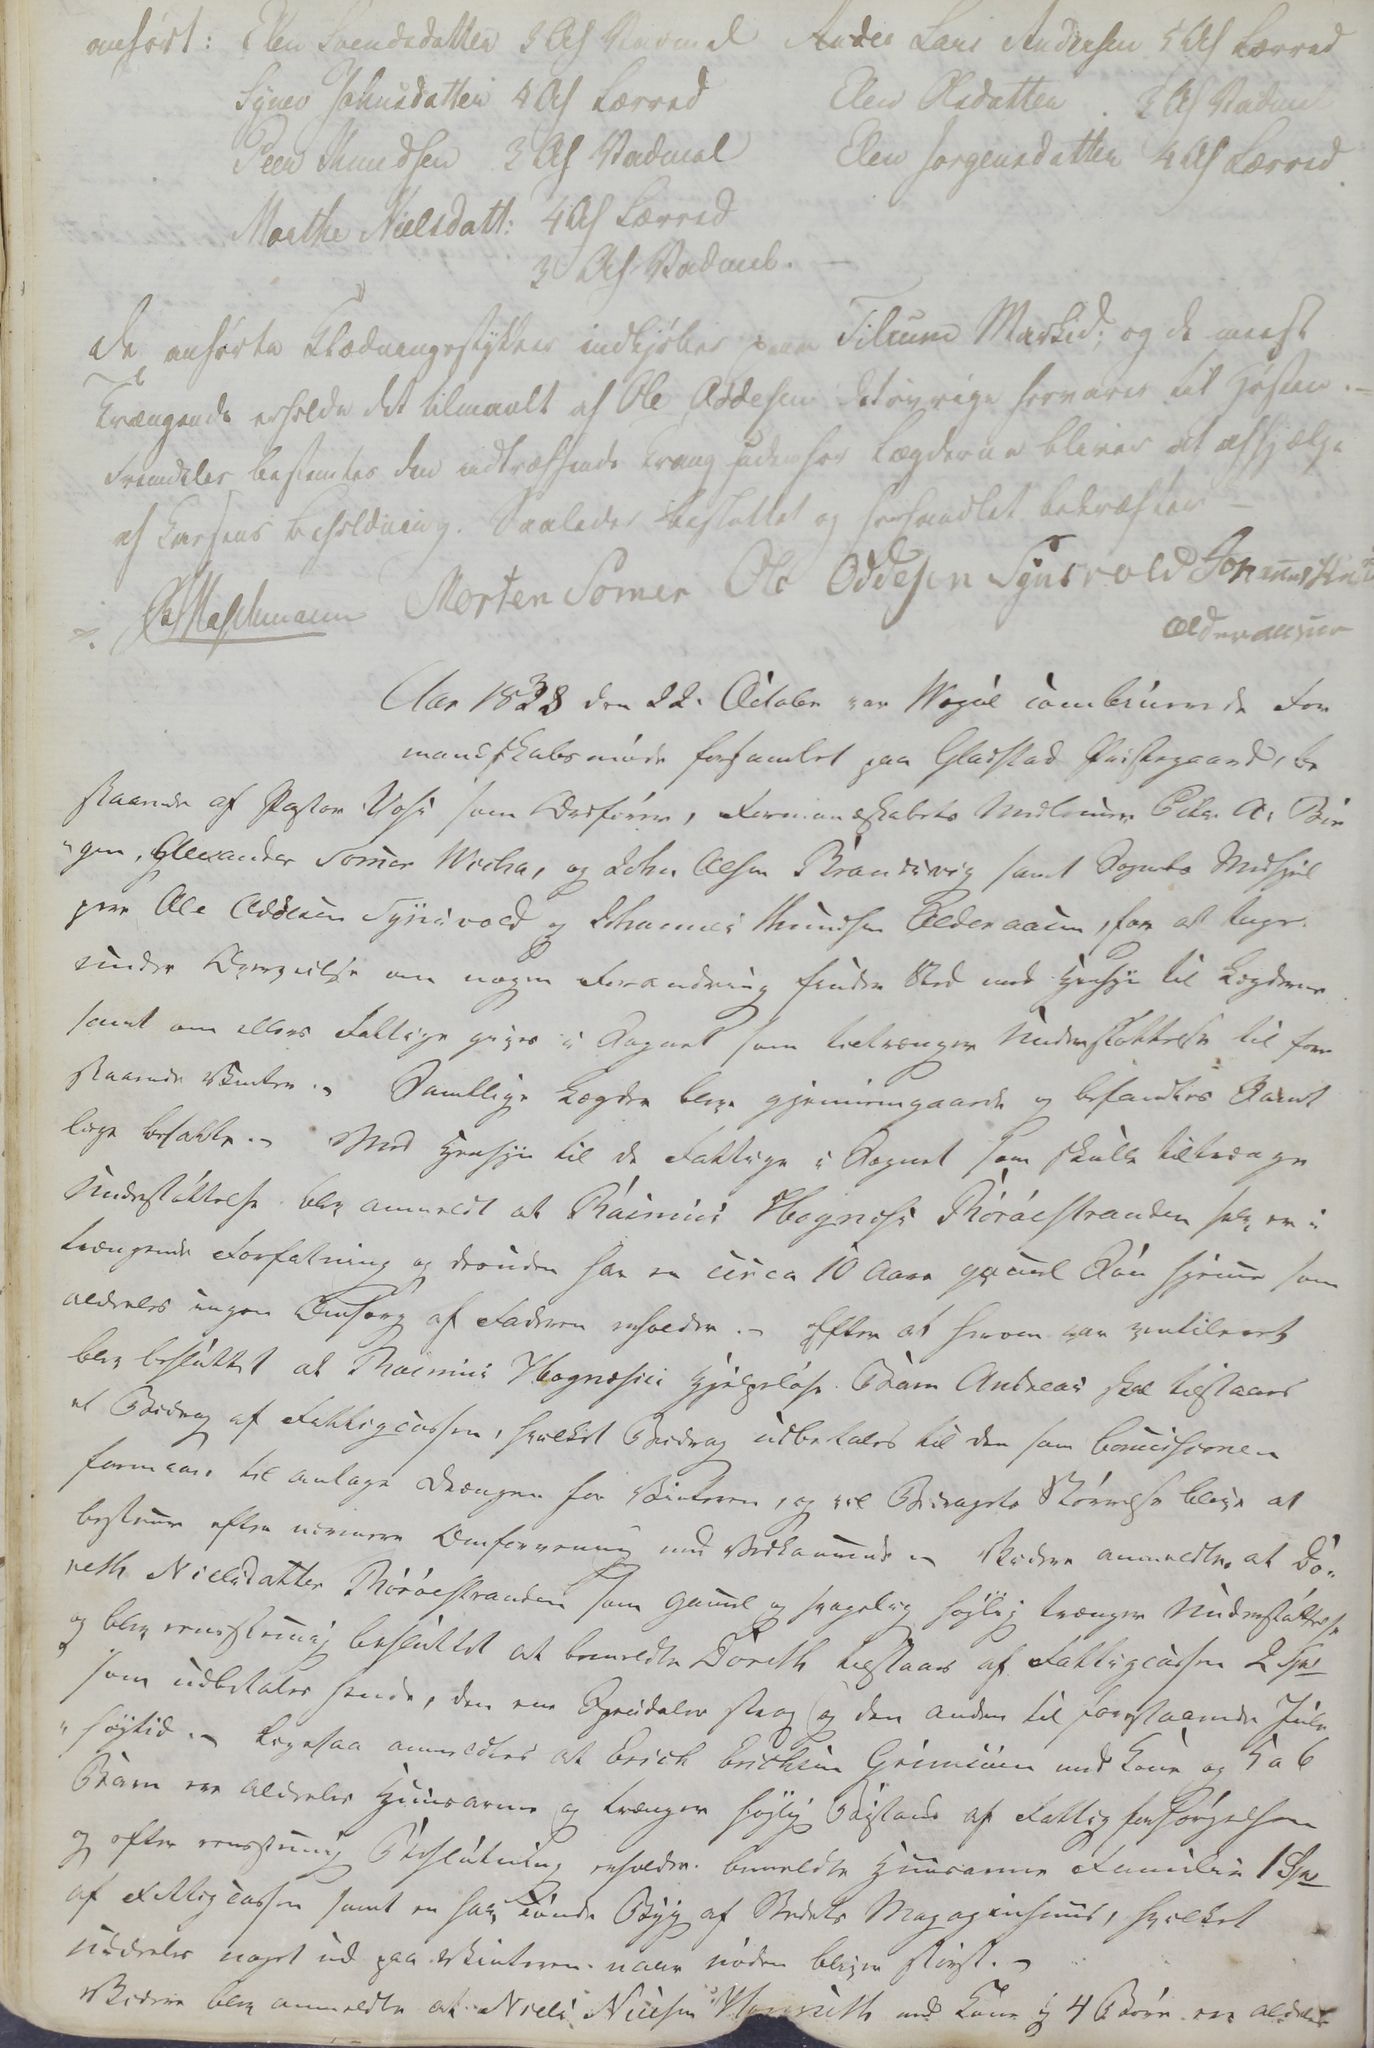 anført: Elen Svendsdatter 3 Al Vadmel Andis Lars Andersen 5 Al Lærred
Synev Johnsdatter 4 Al Lærred Elen Olsdatter 3 Al Vadmel
Peer Knudsen 3 Al Vadmel Elen Jørgensdatter 4 Al Lærred
Marthe Nielsdatt: 4 Al Lærred
3 Al Vadmel.
De anførte Klædningsstykker indkjøbes paa Tilrum Marked; og de meest
trængende erholde det tilmaalt af Ole Oddesen det øvrige forvares til Høsten.-
Fremdeles bestemtes den indtræffende Trang udenfor Lægderne bliver at afhjælpe
af Kassens Beholdning. Saaledes besluttet og forhandlet bekræfter -
Morten Somer Ole Oddesen Synsvold Johannes
Olderaaune
Aar 1838 den 22. October var Wegøe combinerede For
mandskabsmøde forsamlet paa Gladstad Præstegaard, be
staaende af Pastor som Ordfører, Formandskabets Medlemmer Peter A:
Alexander Somer Wicha, og John Olsen Brandsvig samt Sognets Medhjel
pere Ole Oddesen Synsvold og Johannes Knudsen Olderaaune, for at tage
under Overveielse om nogen Forandring finder Sted med Hensyn til Lægderne
samt om ellers Fattige gives i Sognet som tiltrænger Understøttelse til fore
staaende Vinter. - Samtlige Lægder blev gjennemgaaede og befandtes
lige besatte. - Med Hensyn til de Fattige i Sognet som skulle tiltrænge
Understøttelse blev anmeldt at Rasmus Hognesis Rørøestranden selv er i
trængende Forfatning og desuden har en circa 10 Aars gammel Søn hjemme som
aldeles ingen Omsorg af Faderen erholder. - Efter at herom var ventileret
blev besluttet at Rasmus Hognæsis hjelpeløse Barn Andreas skal tilstaaes
et Bidrag af Fattigcassen, hvilket Bidrag udbetales til den som Comissionen
formaaer til antage Drengen for Vinteren, og vil Bidragets Størrelse blive at
bestemme efter nærmere Omforening med Vedkommende - Videre anmeldtes at Do-
reth Nielsdatter Rørøestranden som gammel og svagelig høylig trænger Understøttelse
og blev eenstemmig besluttet at bemeldte Doreth tilstaaes af Fattigcassen 2 Spd
som udbetales hende, den ene Speciedaler strax og den anden til forestaaende Jule
høytid. - Ligesaa anmeldtes at Erich Erichsen Grimsøen med Kone og 5 a 6
Børn ere aldeles Huusarme og trænger høylig Bistand af Fattigforsørgelsen
og efter eenstemmig Beslutning erholder bemeldte Huusarme Familie 1 Spd
af Fattigcassen samt en halv Tønde Byg af Stedets Magazinhuus, hvilket
uddeles noget ud paa Vinteren naar nøden bliver størst. -
Videre blev anmeldte at Niels Nielsen med Kone og 4 Børn ere aldeles